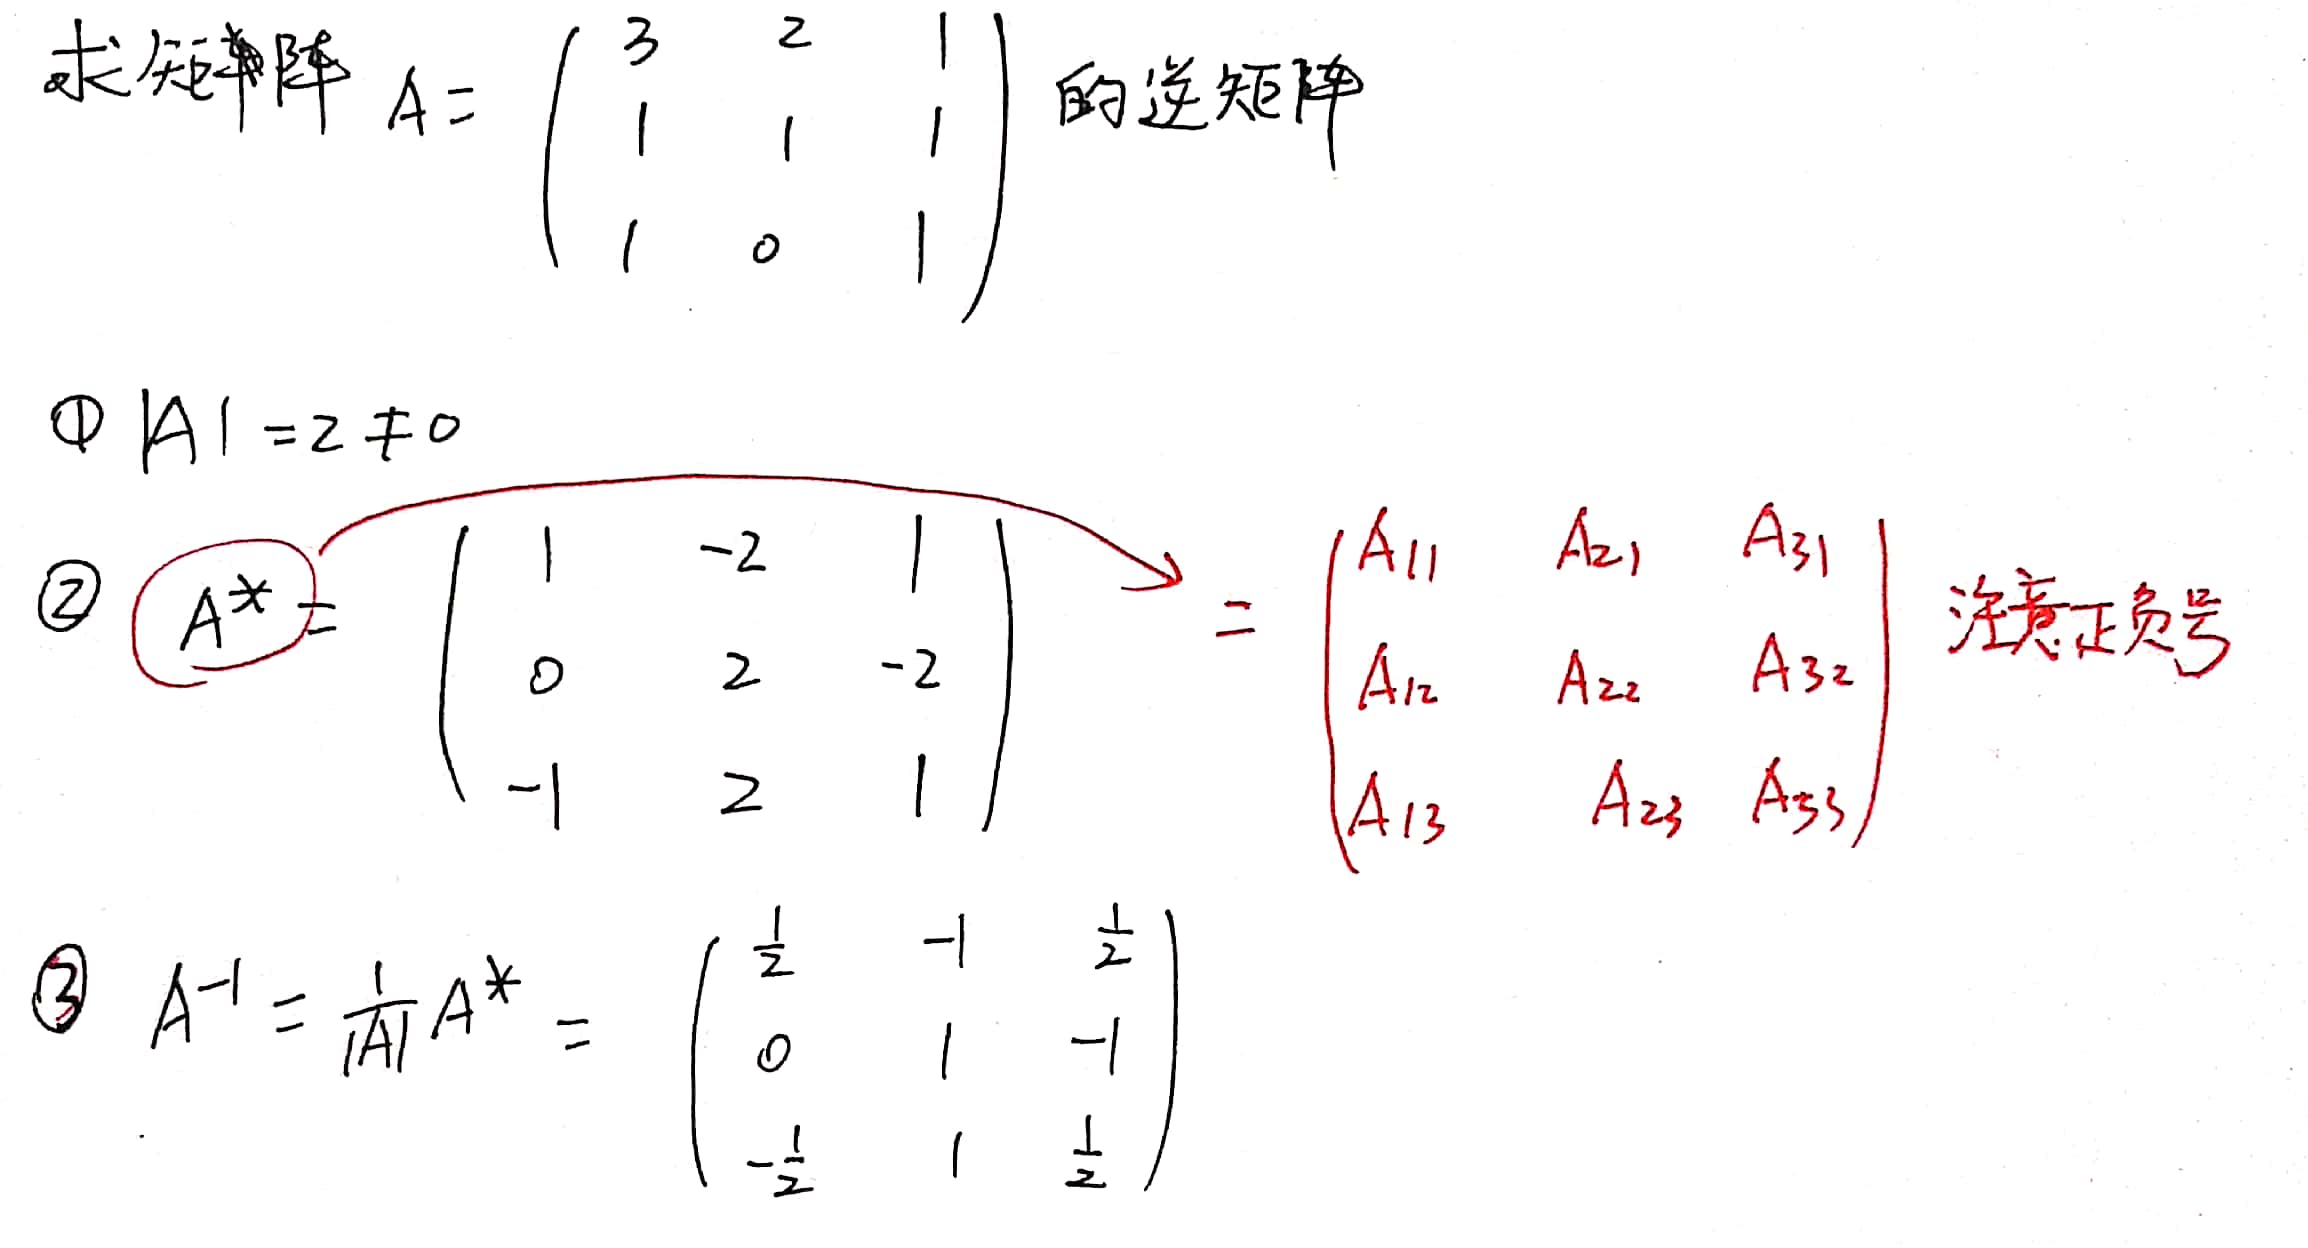 求矩阵 A = ( 3 2 1
1 1 1
1 0 1 ) 的逆矩阵
① |A| = 2 ≠ 0
② A* = ( 1 -2 1
0 2 -2
-1 2 1 ) = ( A11 A21 A31
A12 A22 A32
A13 A23 A33 ) 注意正负号
③ A⁻¹ = 1/|A| A* = ( 1/2 -1 1/2
0 1 -1
-1/2 1 1/2 )